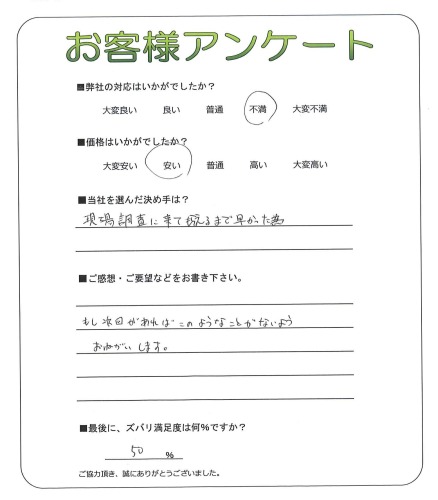 お客様アンケート
■弊社の対応はいかがでしたか？
大変良い 良い 普通 不満 大変不満
■価格はいかがでしたか？
大変安い 安い 普通 高い 大変高い
■当社を選んだ決め手は？
現場調査に来て るまで早かった為
■ご感想・ご要望などをお書き下さい。
もし次回があればこのようなことがないよう
おねがいします。
■最後に、ズバリ満足度は何％ですか？
50 ％
ご協力頂き、誠にありがとうございました。